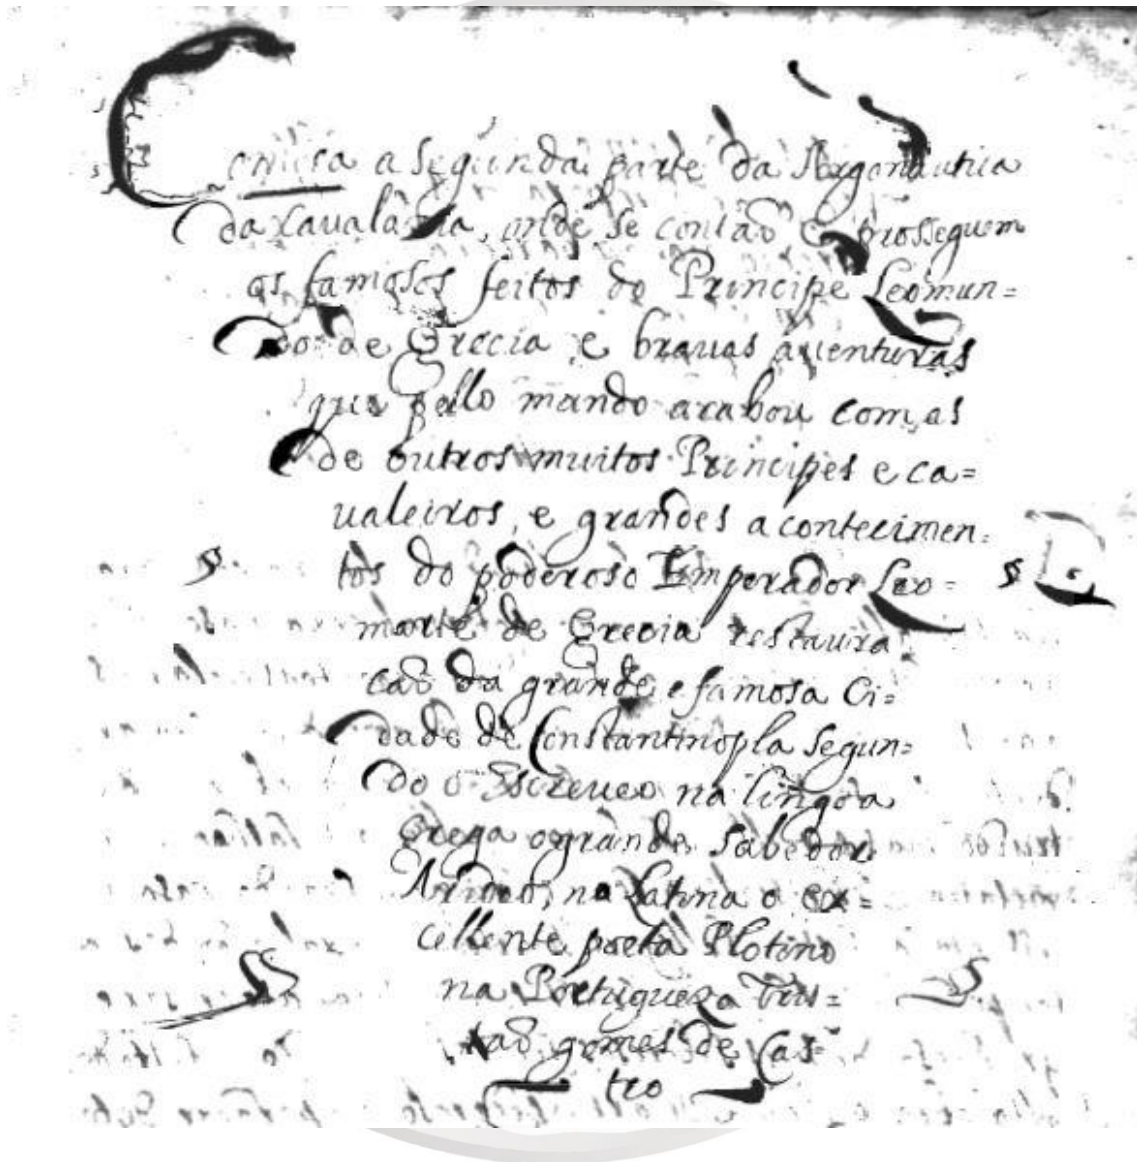 Comesa a Segunda parte da Argonautica
da Caualaria, onde se contaõ e prosseguem
os famosos feitos do Principe Leomun=
do de Grecia e brauas auenturas
que pello mundo acabou com as
de outros muitos Principes e ca=
ualeiros, e grandes acontecimen=
tos do poderoso Emperador Leo=
marte de Grecia restaura
caõ da grande e famosa Ci=
dade de Constantinopla Segun=
do o Escreueo na lingoa
Grega o grande Sabedor
na Latina o ex=
cellente poeta Plotino
na Portugueza Tris=
taõ gomes de Cas=
tro